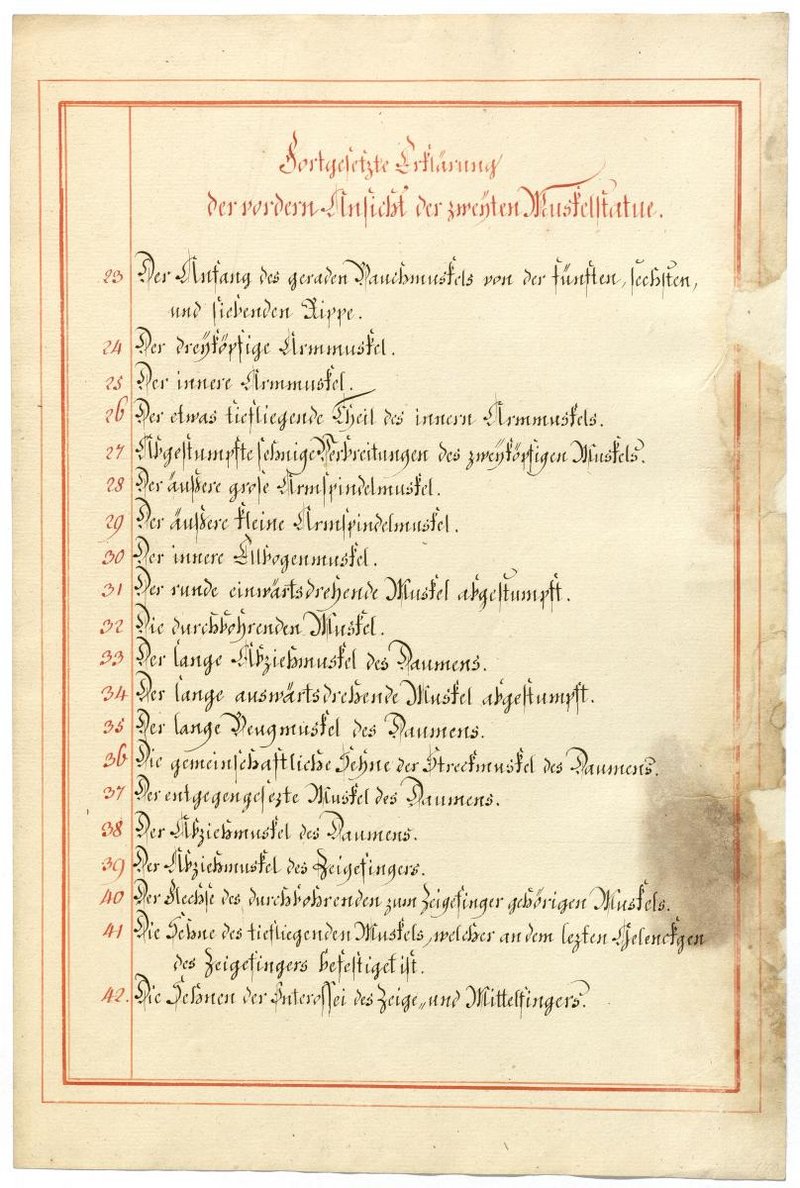 Fortgesetzte Erklärung
der vordern Ansicht der zweyten Muskelstatue.
23 Der Anfang des geraden Bauchmuskels von der fünften, sechsten,
und siebenden Rippe.
24 Der dreyköpfige Armmuskel.
25 Der innere Armmuskel.
26 Der etwas tiefliegende Theil des innern Armmuskels.
27 Abgestumpfte sehnige Verbreitungen des zweyköpfigen Muskels.
28 Der äußere grose Armspindelmuskel.
29 Der äußere kleine Armspindelmuskel.
30 Der innere Ellbogenmuskel.
31 Der runde einwärtsdrehende Muskel abgestumpft.
32 Die durchbohrenden Muskel.
33 Der lange Abziehmuskel des Daumens.
34 Der lange auswärtsdrehende Muskel abgestumpft.
35 Der lange Beugmuskel des Daumens.
36 Die gemeinschaftliche Sehne der Streckmuskel des Daumens.
37 Der entgegengesezte Muskel des Daumens.
38 Der Abziehmuskel des Daumens.
39 Der Abziehmuskel des Zeigefingers.
40 Der Flechse des durchbohrenden zum Zeigefinger gehörigen Muskels.
41 Die Sehne des tiefliegenden Muskels, welcher an dem lezten Gelenckgen
des Zeigefingers befestiget ist.
42. Die Sehnen der Interossei des Zeige„ und Mittelfingers.